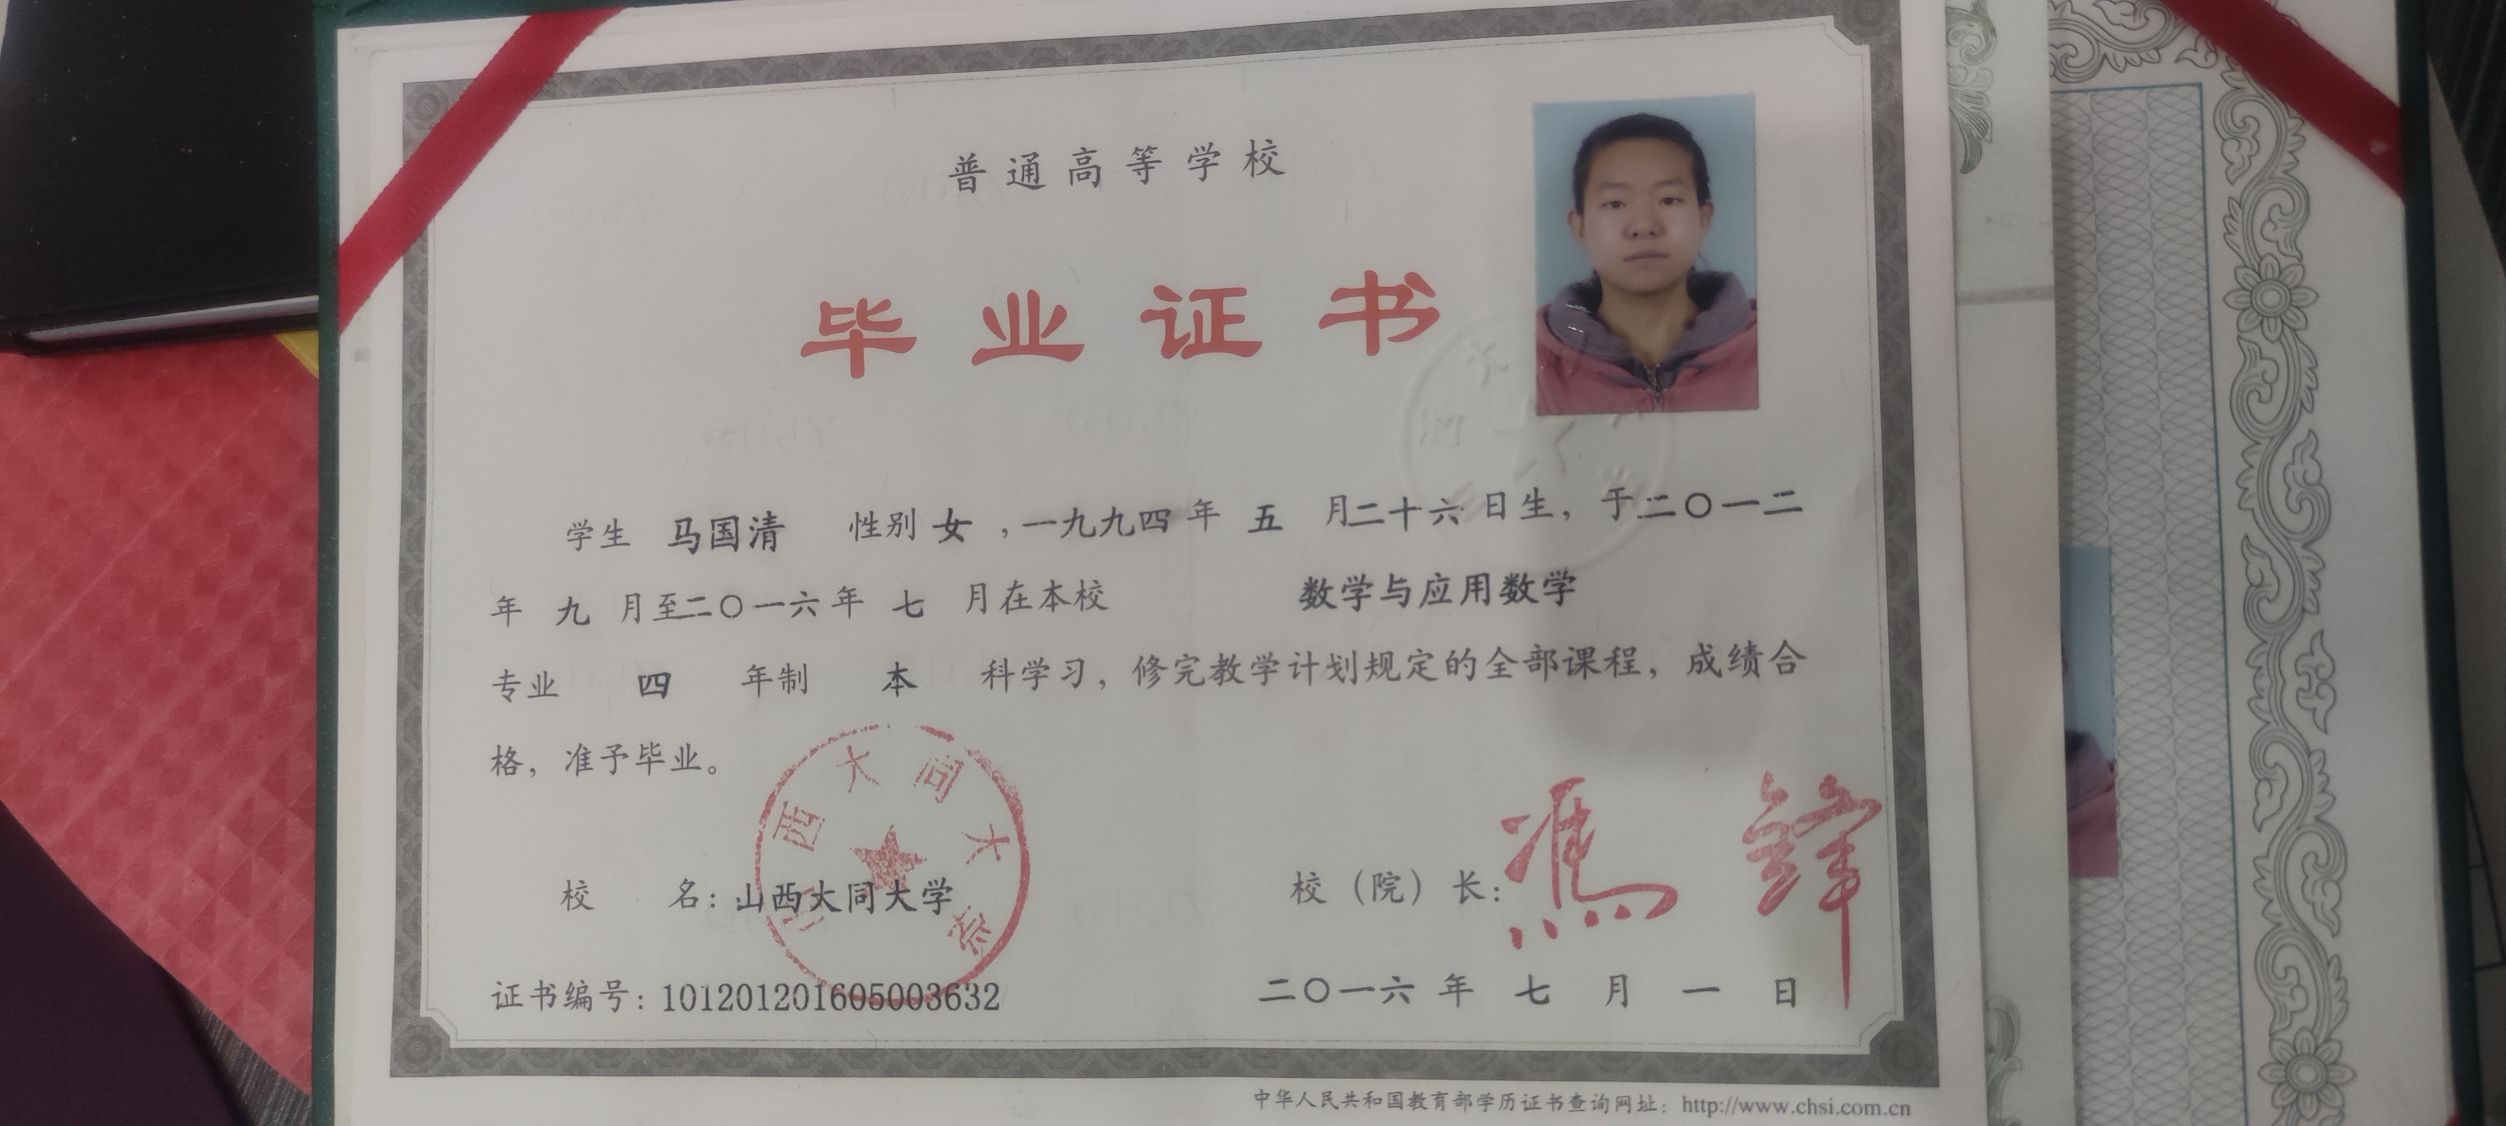 普通高等学校
毕业证书
学生 马国清 性别 女 ,一九九四年 五 月二十六日生，于二〇一二
年 九 月至二〇一六年 七 月在本校 数学与应用数学
专业 四 年制 本 科学习，修完教学计划规定的全部课程，成绩合
格，准予毕业。
山西大同大学
校 名：山西大同大学 校（院）长：馮鋒
证书编号：101201201605003632 二〇一六年 七 月 一 日
中华人民共和国教育部学历证书查询网址：http://www.chsi.com.cn